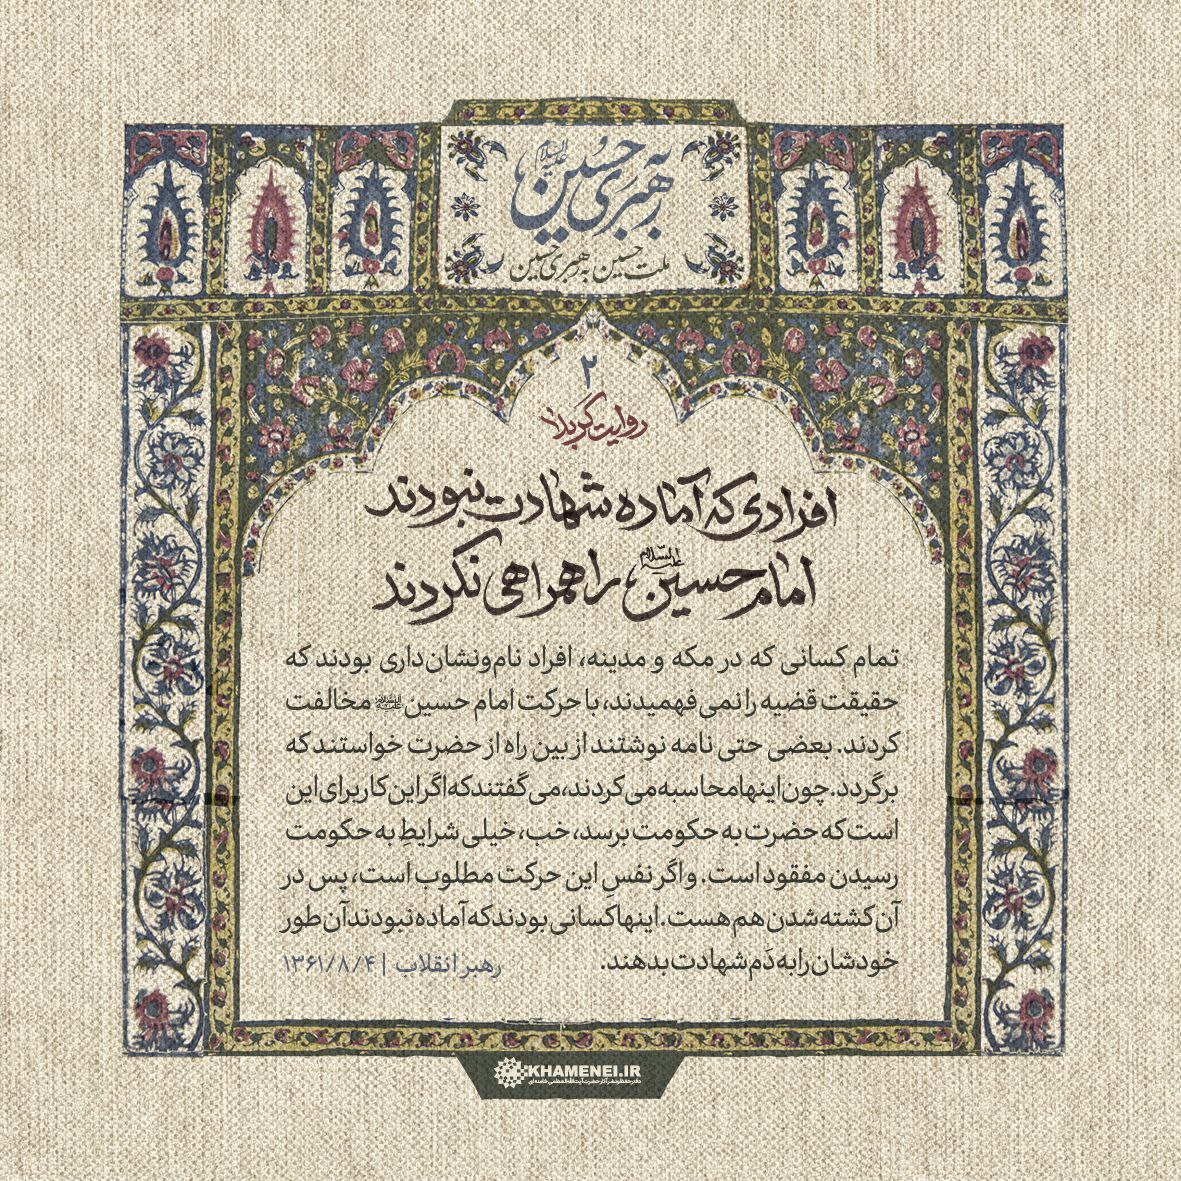 به رهبری حسین علیه‌السلام
ملت حسین به رهبری حسین
۲
روایت کربلا
افرادی که آماده شهادت نبودند
امام حسین علیه‌السلام را همراهی نکردند
تمام کسانی که در مکه و مدینه، افراد نام‌ونشان‌داری بودند که
حقیقت قضیه را نمی فهمیدند، با حرکت امام حسین علیه‌السلام مخالفت
کردند. بعضی حتی نامه نوشتند از بین راه از حضرت خواستند که
برگردد. چون اینها محاسبه می کردند، می گفتند که اگر این کار برای این
است که حضرت به حکومت برسد، خب، خیلی شرایطِ به حکومت
رسیدن مفقود است. و اگر نفسِ این حرکت مطلوب است، پس در
آن کشته شدن هم هست. اینها کسانی بودند که آماده نبودند آن طور
خودشان را به دَم شهادت بدهند.
رهبر انقلاب | ۱۳۶۱/۸/۴
KHAMENEI.IR
دفتر حفظ و نشر آثار حضرت آیت‌الله العظمی خامنه‌ای